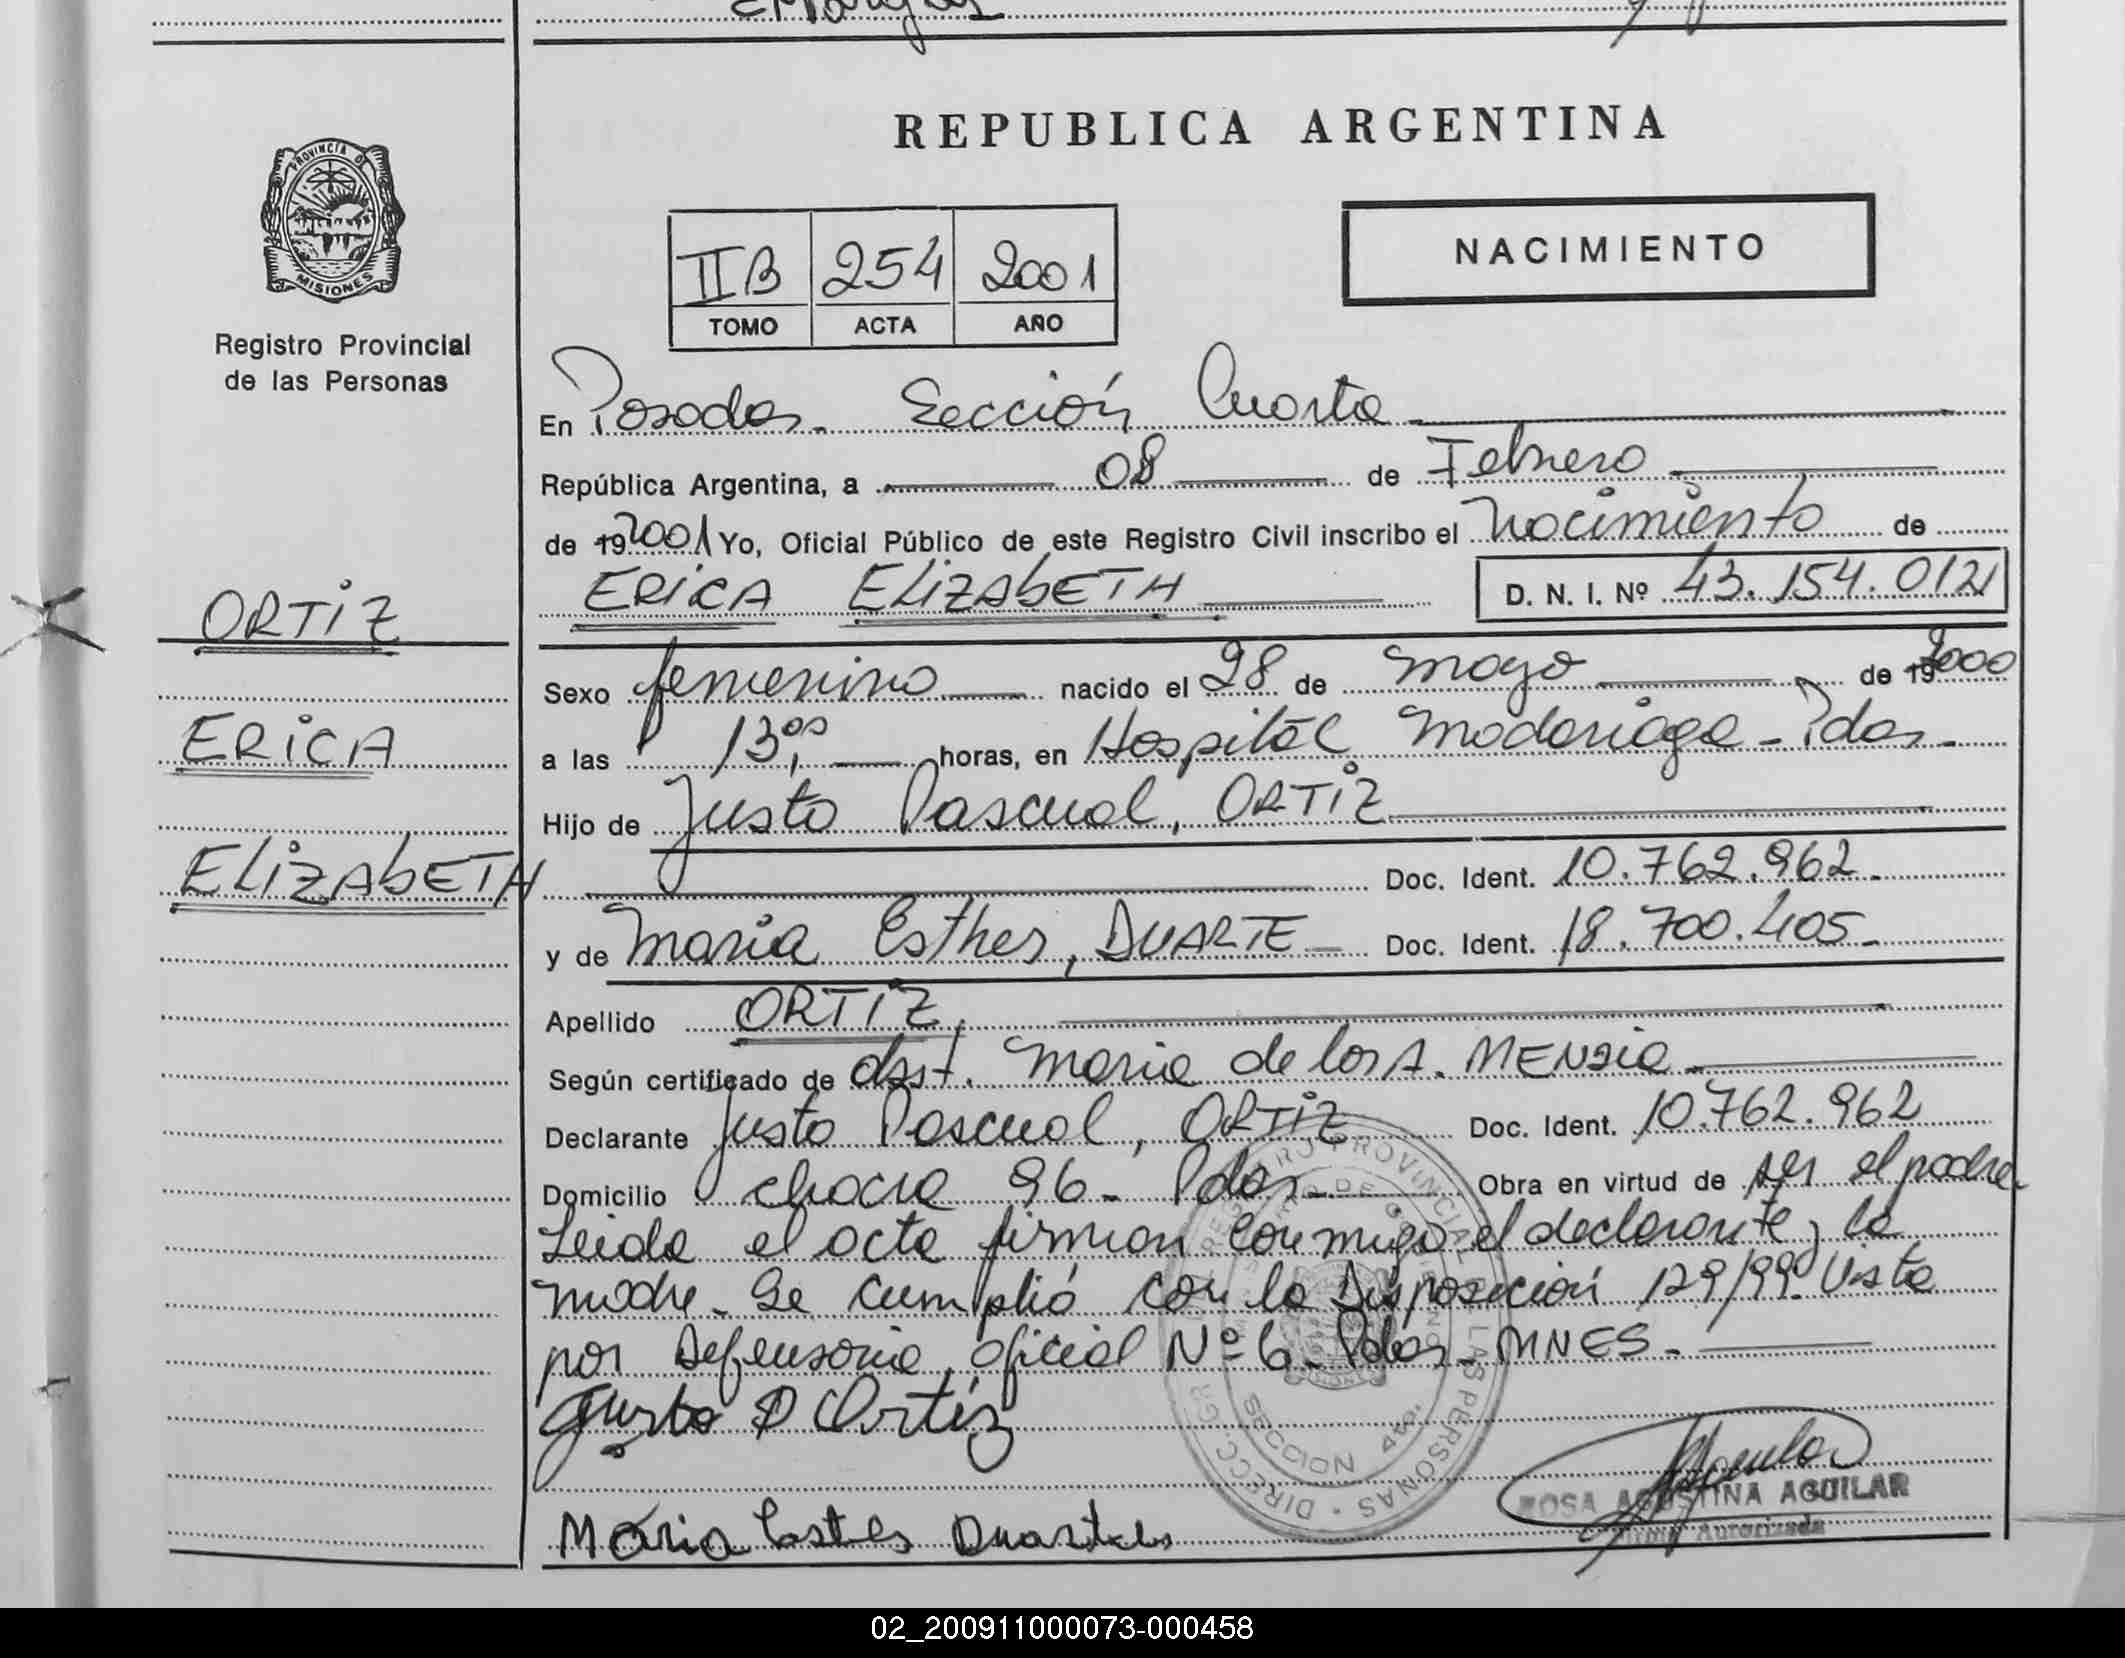 REPUBLICA ARGENTINA
PROVINCIA DE
MISIONES
Registro Provincial
de las Personas
NACIMIENTO
II B 254 2001
TOMO ACTA AÑO
En Posadas. Sección Cuarta
República Argentina, a 08 de Febrero
de 19 2001 Yo, Oficial Público de este Registro Civil inscribo el Nacimiento de
ERICA ELIZABETH D. N. I. Nº 43.154.012
ORTIZ
ERICA
ELIZABETH
Sexo femenino nacido el 28 de mayo de 19 2000
a las 13,00 horas, en Hospital Madariaga - Pdas.
Hijo de Justo Pascual, ORTIZ
Doc. Ident. 10.762.962.
y de Maria Esther, DUARTE Doc. Ident. 18.700.405.
Apellido ORTIZ
Según certificado de obst. Maria de los A. MENDIE
Declarante Justo Pascual, ORTIZ Doc. Ident. 10.762.962
Domicilio chacra 96 - Pdas. Obra en virtud de ser el padre
Leida el acta firman conmigo el declarante y la
madre. Se cumplió con la Disposición 129/99. Vista
por Defensoria oficial Nº 6 - Pdas. MNES.
Justo P Ortiz
Maria Ester Duarte
ROSA AGUSTINA AGUILAR
Firma Autorizada
DIRECC. GR. REGISTRO PROVINCIAL DE LAS PERSONAS
SECCION 4ta.
02_200911000073-000458